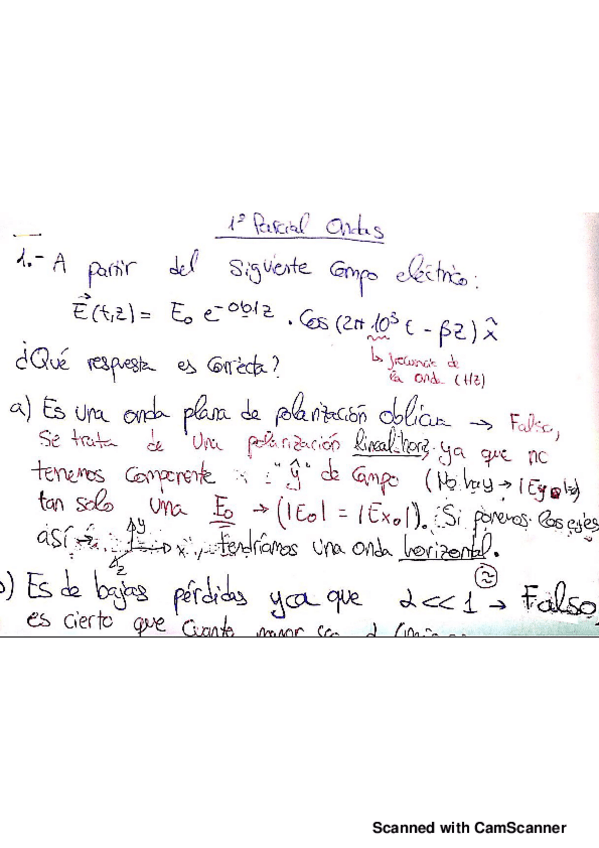 1º Parcial Ondas
1.- A partir del siguiente campo eléctrico:
E⃗(t,z) = E₀ e^-0'01z · Cos (2π·10³ t - βz) x̂
¿Qué respuesta es correcta?
↳ frecuencia de
la onda (Hz)
a) Es una onda plana de polarización oblicua → Falso,
se trata de una polarización lineal horz. ya que no
tenemos componente "ŷ" de campo (No hay → |Ey₀|)
tan solo una E₀ → (|E₀| = |Ex₀|). Si ponemos los ejes
así → y x z, tendríamos una onda horizontal.
b) Es de bajas pérdidas ya que α << 1 → Falso,
es cierto que cuanto menor sea α
Scanned with CamScanner